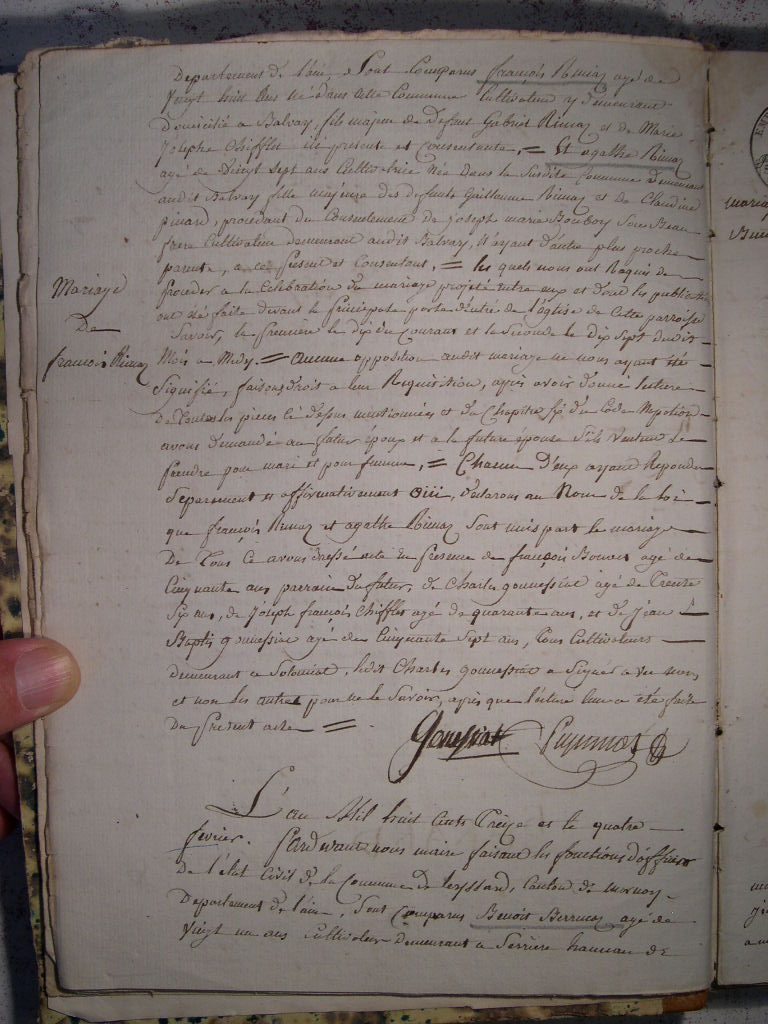 Departement de l'ain, Sont Comparus françois Rimaz agé de
Vingt huit ans né dans cette Commune Cultivateur y demeurant
domicilié a Balvay, fils majeur de defunt Gabriel Rimaz et de Marie
Josephe Chifflet ici presente et Consentante, = Et agathe Rimaz
agé de Vingt sept ans Cultivatrice née dans la Susdite Commune Demeurant
audit Balvay fille majeure des defunts Guillaume Rimaz et de Claudine
pinard, procédant du Consentement de Joseph marie Bouboy Son Beau
frere Cultivateur demeurant audit Balvay, N'ayant d'autre plus proche
parente, a ce présent et Consentant, = les quels nous ont Requis de
proceder a la Celebration du mariage projeté entre eux et dont les publications
ont été faite devant la principale porte d'entré de l'église de Cette parroisse
Savoir, la première le dix du Courant et la Seconde le Dix Sept dudit
Mois a Midy. = aucune opposition audit mariage ne nous ayant été
Signifié, faisons droit a leur Requisition, après avoir donné lecture
De toutes les pieces Ci dessus mentionnées et du Chapitre du Code Napoléon
avons demandé au futur époux et a la future épouse S'ils veulent Se
prendre pour mari et pour femme, = Chacun D'eux ayant Repondu
Separement et affirmativement oui, declarons au Nom de la loi
que françois Rimaz et agathe Rimaz Sont unis par le mariage
De Tous Ce avons dressé acte En presence de françois Bouvet agé de
Cinquante ans parrain du futur, de Charles gonnessiat agé de Trente
Six ans, de Joseph françois Chifflet agé de quarante ans, et de Jean
Baptis gonnessiat agé de Cinquante Sept ans, Tous Cultivateurs
demeurant a Solomiat, ledit Charles gonnessiat a Signés avec nous
et non les autres pour ne le Savoir, après que lecture leur a été faite
Du Présent acte =
Gonessiat
Mariage
De
françois Rimaz
L'an Mil huit Cents Treize et le quatre
fevrier. Pardevant nous maire faisant les fonctions d'officier
De l'état Civil de la Commune de leyssard, Canton de
Departement de l'ain, Sont Comparus Benoit agé de
Vingt un ans Cultivateur Demeurant a Serrière hameau de